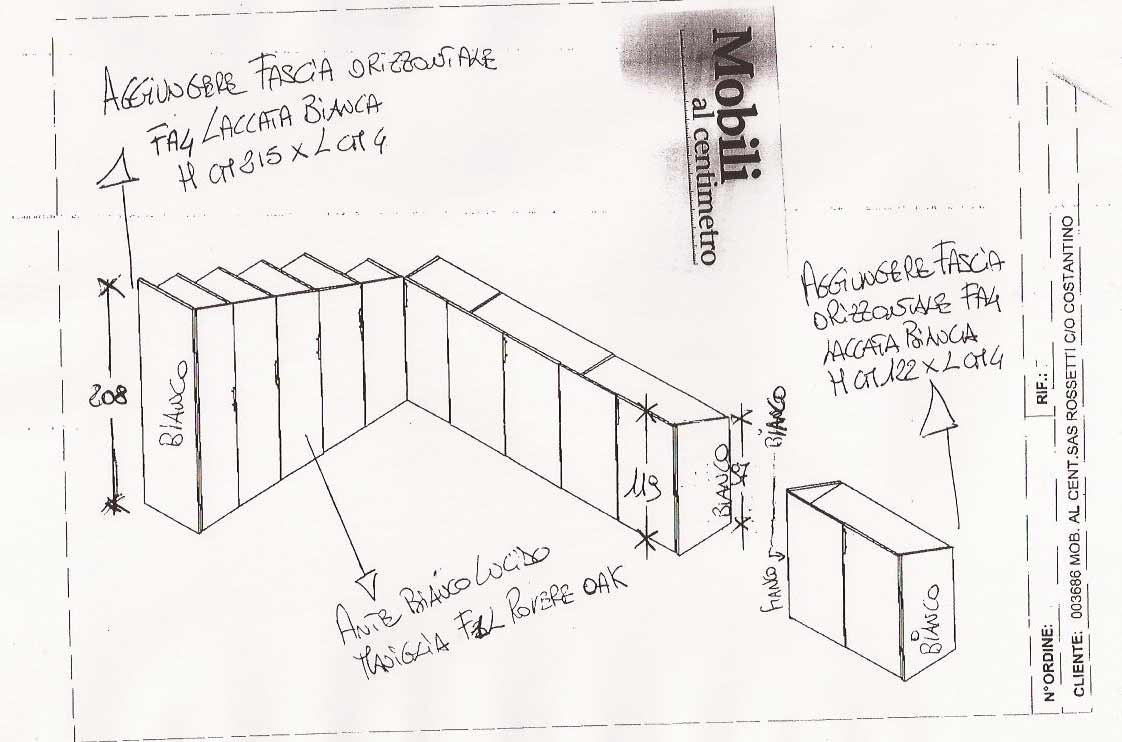 AGGIUNGERE FASCIA ORIZZONTALE
FA4 LACCATA BIANCA
H CM 215 x L CM 4
Mobili
al centimetro
AGGIUNGERE FASCIA
ORIZZONTALE FA4
LACCATA BIANCA
H CM 122 x L CM 4
208
BIANCO
119
BIANCO
BIANCO
FIANCO
BIANCO
ANTE BIANCO LUCIDO
MANIGLIA ROVERE OAK
N°ORDINE:
RIF.:
CLIENTE: 003686 MOB. AL CENT.SAS ROSSETTI C/O COSTANTINO